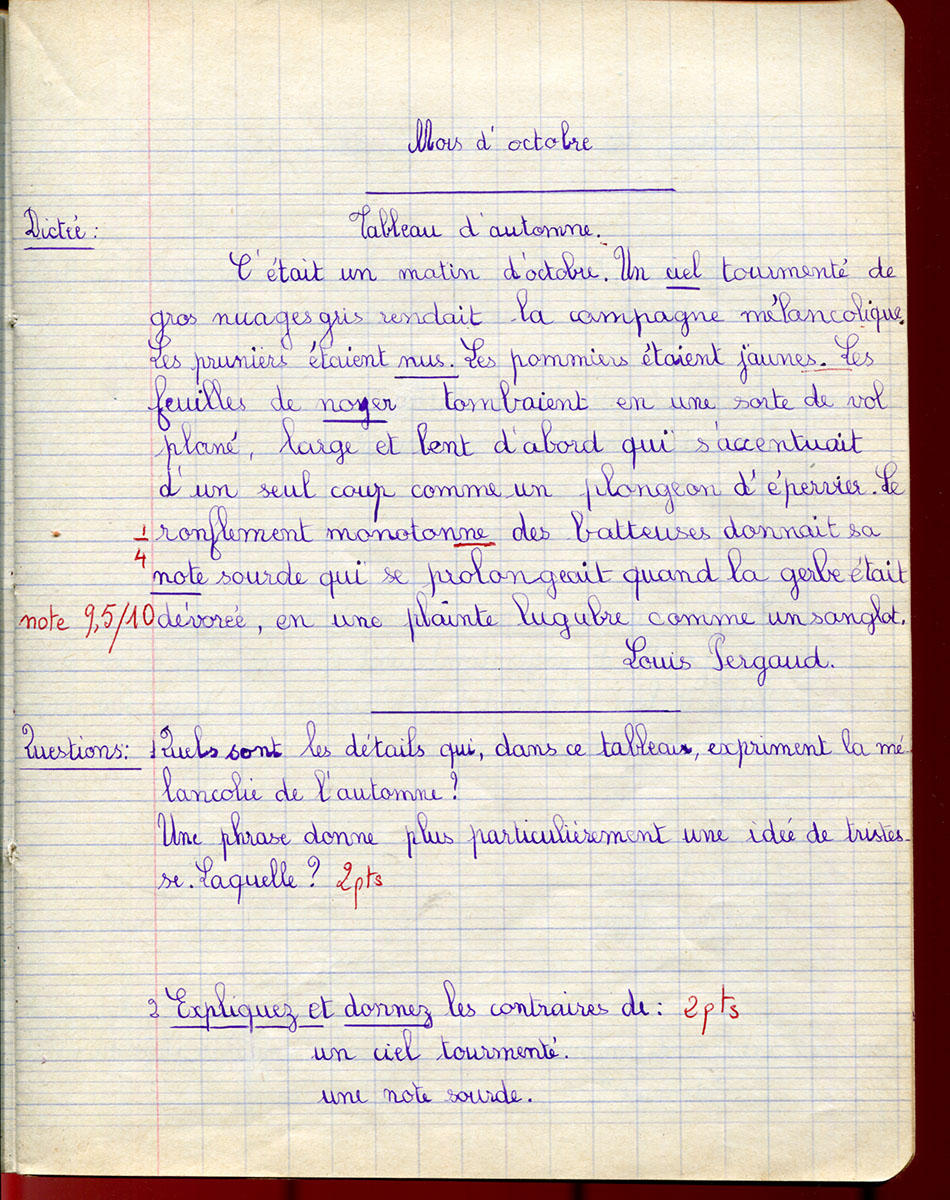 Mois d'octobre
Dictée : Tableau d'automne.
C'était un matin d'octobre. Un ciel tourmenté de
gros nuages gris rendait la campagne mélancolique.
Les pruniers étaient nus. Les pommiers étaient jaunes. Les
feuilles de noyer tombaient en une sorte de vol
plané, large et lent d'abord qui s'accentuait
d'un seul coup comme un plongeon d'épervier. Le
1/4 ronflement monotonne des batteuses donnait sa
note sourde qui se prolongeait quand la gerbe était
note 9,5/10 dévorée, en une plainte lugubre comme un sanglot.
Louis Pergaud.
Questions : 1 Quels sont les détails qui, dans ce tableau, expriment la mé-
lancolie de l'automne ?
Une phrase donne plus particulièrement une idée de tristes-
se. Laquelle ? 2pts
2 Expliquez et donnez les contraires de : 2pts
un ciel tourmenté.
une note sourde.